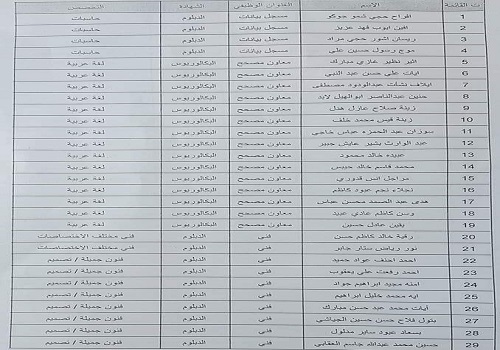 ت القائمة الاسم العنوان الوظيفي الشهادة التخصص
1 افراح حجي شمو جوكو مسجل بيانات الدبلوم حاسبات
2 افين ايوب فهد عزيز مسجل بيانات الدبلوم حاسبات
3 ريسان اشور حجي مراد مسجل بيانات الدبلوم حاسبات
4 موج رسول حسين علي مسجل بيانات الدبلوم حاسبات
5 اثير نظير غازي مبارك معاون مصحح البكالوريوس لغة عربية
6 ايات علي حسن عبد النبي معاون مصحح البكالوريوس لغة عربية
7 ايلاف نشأت عبدالودود مصطفى معاون مصحح البكالوريوس لغة عربية
8 حنين عبدالناصر ابوالهيل لابد معاون مصحح البكالوريوس لغة عربية
9 زينة صلاح عازل هدل معاون مصحح البكالوريوس لغة عربية
10 زينة قيس محمد خلف معاون مصحح البكالوريوس لغة عربية
11 سوزان عبد الحمزه عباس خاجي معاون مصحح البكالوريوس لغة عربية
12 عبد الوارث بشير عايش جبير معاون مصحح البكالوريوس لغة عربية
13 عبيده خالد محمود معاون مصحح البكالوريوس لغة عربية
14 محمد قاسم خالد حبيس معاون مصحح البكالوريوس لغة عربية
15 مراجل انس قدوري معاون مصحح البكالوريوس لغة عربية
16 نجلاء نجم عبود كاظم معاون مصحح البكالوريوس لغة عربية
17 هدى عبد الصمد محسن عباس معاون مصحح البكالوريوس لغة عربية
18 وسن كاظم عادي عبيد معاون مصحح البكالوريوس لغة عربية
19 يقين عادل حسين معاون مصحح البكالوريوس لغة عربية
20 رقية خالد كاظم حسن فني الدبلوم فني مختلف الاختصاصات
21 نور رياض ستار جابر فني الدبلوم فني مختلف الاختصاصات
22 احمد احنف عواد حميد فني الدبلوم فنون جميلة / تصميم
23 احمد رفعت علي يعقوب فني الدبلوم فنون جميلة / تصميم
24 امنه مجيد ابراهيم جواد فني الدبلوم فنون جميلة / تصميم
25 ايه محمد خليل ابراهيم فني الدبلوم فنون جميلة / تصميم
26 آيات محمد عبد حسن مبارك فني الدبلوم فنون جميلة / تصميم
27 بتول فلاح حسن حسين الجياشي فني الدبلوم فنون جميلة / تصميم
28 بسعاد عبود ساير مدلول فني الدبلوم فنون جميلة / تصميم
29 حسين محمد عبدالله جاسم العقابي فني الدبلوم فنون جميلة / تصميم